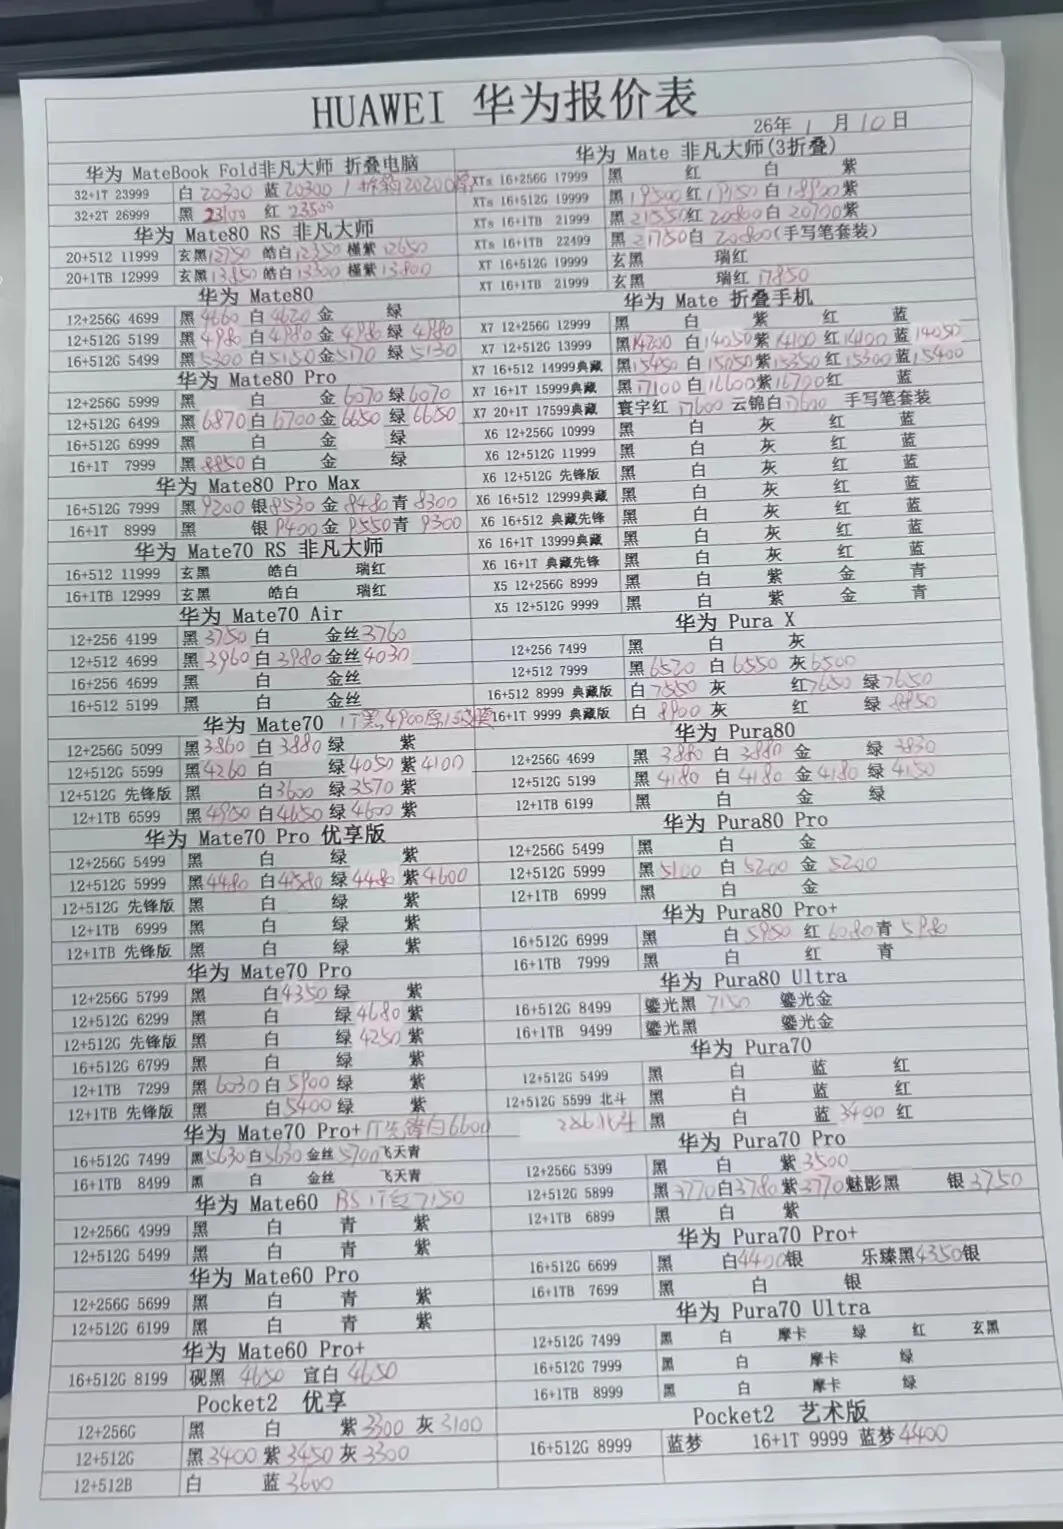 HUAWEI 华为报价表
26年 1 月 10 日
华为 MateBook Fold非凡大师 折叠电脑
32+1T 23999 白 20300 蓝 20300
32+2T 26999 黑 23100 红 23500
华为 Mate80 RS 非凡大师
20+512 11999 玄黑 12750 皓白 12350 槿紫 12650
20+1TB 12999 玄黑 13850 皓白 13300 槿紫 13800
华为 Mate80
12+256G 4699 黑 4660 白 4620 金 绿
12+512G 5199 黑 4980 白 4980 金 4980 绿 4980
16+512G 5499 黑 5300 白 5150 金 5170 绿 5130
华为 Mate80 Pro
12+256G 5999 黑 白 金 6070 绿 6070
12+512G 6499 黑 6870 白 6700 金 6650 绿 6650
16+512G 6999 黑 白 金 绿
16+1T 7999 黑 8850 白 金 绿
华为 Mate80 Pro Max
16+512G 7999 黑 9200 银 8530 金 8480 青 8300
16+1T 8999 黑 银 9400 金 9550 青 9300
华为 Mate70 RS 非凡大师
16+512 11999 玄黑 皓白 瑞红
16+1TB 12999 玄黑 皓白 瑞红
华为 Mate70 Air
12+256 4199 黑 3750 白 金丝 3760
12+512 4699 黑 3960 白 3980 金丝 4030
16+256 4699 黑 白 金丝
16+512 5199 黑 白 金丝
华为 Mate70 1T黑4900
12+256G 5099 黑 3860 白 3880 绿 紫
12+512G 5599 黑 4260 白 绿 4050 紫 4100
12+512G 先锋版 黑 白 3600 绿 3570 紫
12+1TB 6599 黑 4950 白 4650 绿 4600 紫
华为 Mate70 Pro 优享版
12+256G 5499 黑 白 绿 紫
12+512G 5999 黑 4480 白 4580 绿 4480 紫 4600
12+512G 先锋版 黑 白 绿 紫
12+1TB 6999 黑 白 绿 紫
12+1TB 先锋版 黑 白 绿 紫
华为 Mate70 Pro
12+256G 5799 黑 白 4350 绿 紫
12+512G 6299 黑 白 绿 4680 紫
12+512G 先锋版 黑 白 绿 4250 紫
16+512G 6799 黑 白 绿 紫
12+1TB 7299 黑 6030 白 5900 绿 紫
12+1TB 先锋版 黑 白 5400 绿 紫
华为 Mate70 Pro+ 1T先锋白6600
16+512G 7499 黑 5630 白 5630 金丝 5700 飞天青
16+1TB 8499 黑 白 金丝 飞天青
华为 Mate60 RS 1T红 7150
12+256G 4999 黑 白 青 紫
12+512G 5499 黑 白 青 紫
华为 Mate60 Pro
12+256G 5699 黑 白 青 紫
12+512G 6199 黑 白 青 紫
华为 Mate60 Pro+
16+512G 8199 砚黑 4650 宣白 4650
Pocket2 优享
12+256G 黑 白 紫 3300 灰 3100
12+512G 黑 3400 紫 3450 灰 3300
12+512B 白 蓝 3600
华为 Mate 非凡大师(3折叠)
XTs 16+256G 17999 黑 红 白 紫
XTs 16+512G 19999 黑 19500 红 19150 白 18900 紫
XTs 16+1TB 21999 黑 21550 红 20800 白 20700 紫
XTs 16+1TB 22499 黑 21750 白 20800 (手写笔套装)
XT 16+512G 19999 玄黑 瑞红
XT 16+1TB 21999 玄黑 瑞红 17850
华为 Mate 折叠手机
X7 12+256G 12999 黑 白 紫 红 蓝
X7 12+512G 13999 黑 14200 白 14050 紫 14100 红 14100 蓝 14050
X7 16+512 14999典藏 黑 15450 白 15050 紫 15350 红 15300 蓝 15400
X7 16+1T 15999典藏 黑 17100 白 16600 紫 16700 红 蓝
X7 20+1T 17599典藏 寰宇红 17600 云锦白 17600 手写笔套装
X6 12+256G 10999 黑 白 灰 红 蓝
X6 12+512G 11999 黑 白 灰 红 蓝
X6 12+512G 先锋版 黑 白 灰 红 蓝
X6 16+512 12999典藏 黑 白 灰 红 蓝
X6 16+512 典藏先锋 黑 白 灰 红 蓝
X6 16+1T 13999典藏 黑 白 灰 红 蓝
X6 16+1T 典藏先锋 黑 白 灰 红 蓝
X5 12+256G 8999 黑 白 紫 金 青
X5 12+512G 9999 黑 白 紫 金 青
华为 Pura X
12+256 7499 黑 白 灰
12+512 7999 黑 6520 白 6550 灰 6500
16+512 8999 典藏版 白 7550 灰 红 7650 绿 7650
16+1T 9999 典藏版 白 8900 灰 红 绿 8850
华为 Pura80
12+256G 4699 黑 3880 白 3880 金 绿 3830
12+512G 5199 黑 4180 白 4180 金 4180 绿 4150
12+1TB 6199 黑 白 金 绿
华为 Pura80 Pro
12+256G 5499 黑 白 金
12+512G 5999 黑 5100 白 5200 金 5200
12+1TB 6999 黑 白 金
华为 Pura80 Pro+
16+512G 6999 黑 白 5950 红 6080 青 5980
16+1TB 7999 黑 白 红 青
华为 Pura80 Ultra
16+512G 8499 鎏光黑 7150 鎏光金
16+1TB 9499 鎏光黑 鎏光金
华为 Pura70
12+512G 5499 黑 白 蓝 红
12+512G 5599 北斗 黑 白 蓝 红
256北斗 黑 白 蓝 3400 红
华为 Pura70 Pro
12+256G 5399 黑 白 紫 3500
12+512G 5899 黑 3770 白 3780 紫 3770 魅影黑 银 3750
12+1TB 6899 黑 白 紫
华为 Pura70 Pro+
16+512G 6699 黑 白 4400 银 乐臻黑 4350 银
16+1TB 7699 黑 白 银
华为 Pura70 Ultra
12+512G 7499 黑 白 摩卡 绿 红 玄黑
16+512G 7999 黑 白 摩卡 绿
16+1TB 8999 黑 白 摩卡 绿
Pocket2 艺术版
16+512G 8999 蓝梦 16+1T 9999 蓝梦 4400